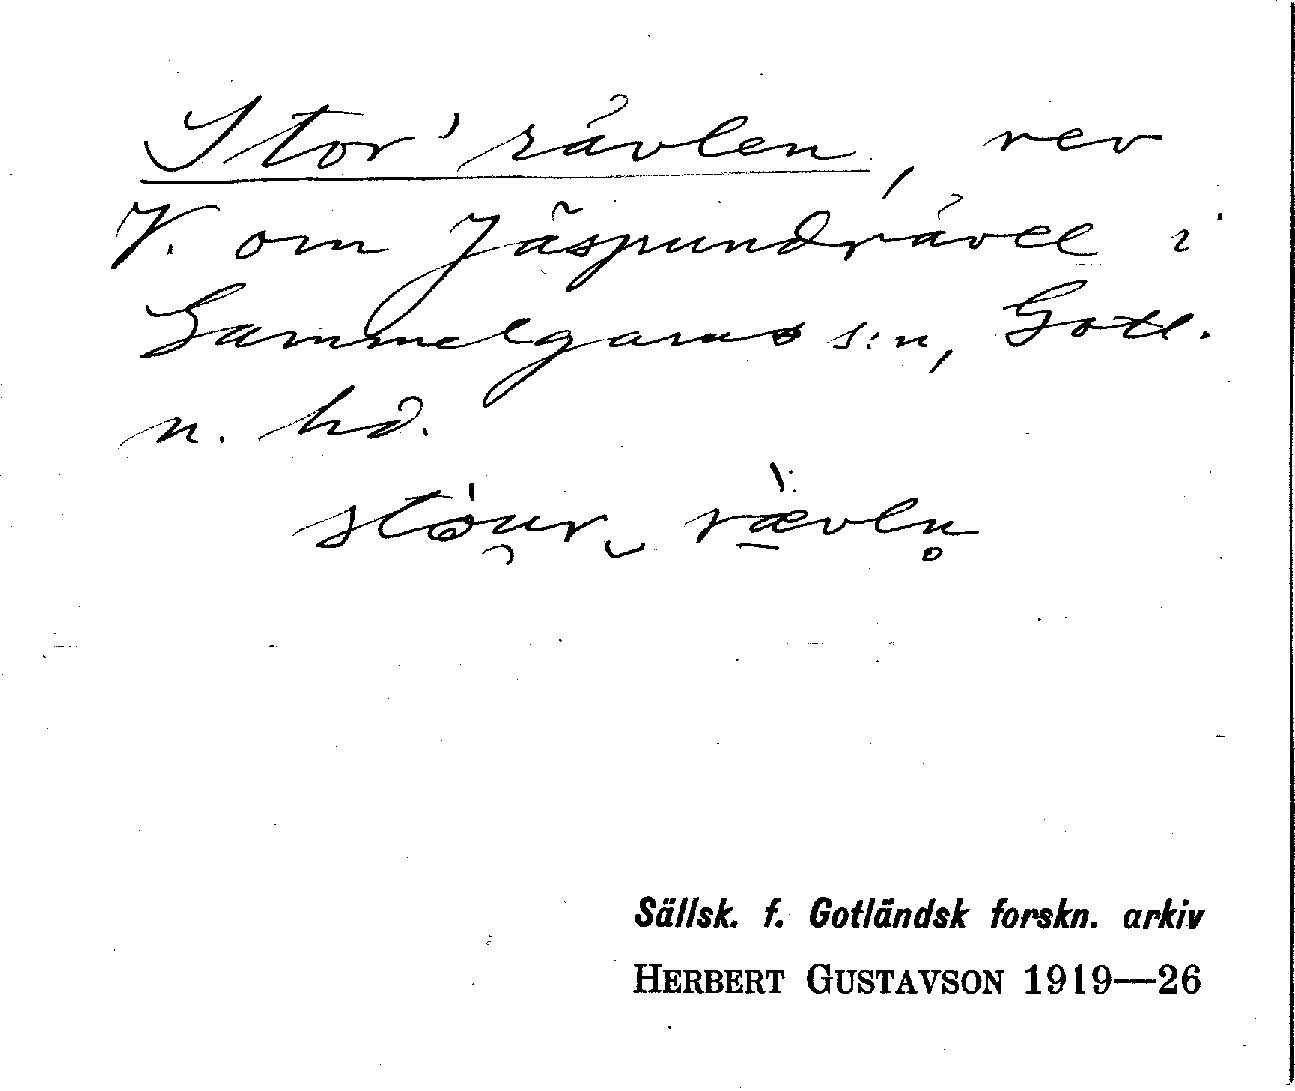 Stor' rävlen, rev
V. om Jäspundrävel i
Gammelgarns s:n, Gotl.
n. hd.
stöur rævln
Sällsk. f. Gotländsk forskn. arkiv
HERBERT GUSTAVSON 1919—26